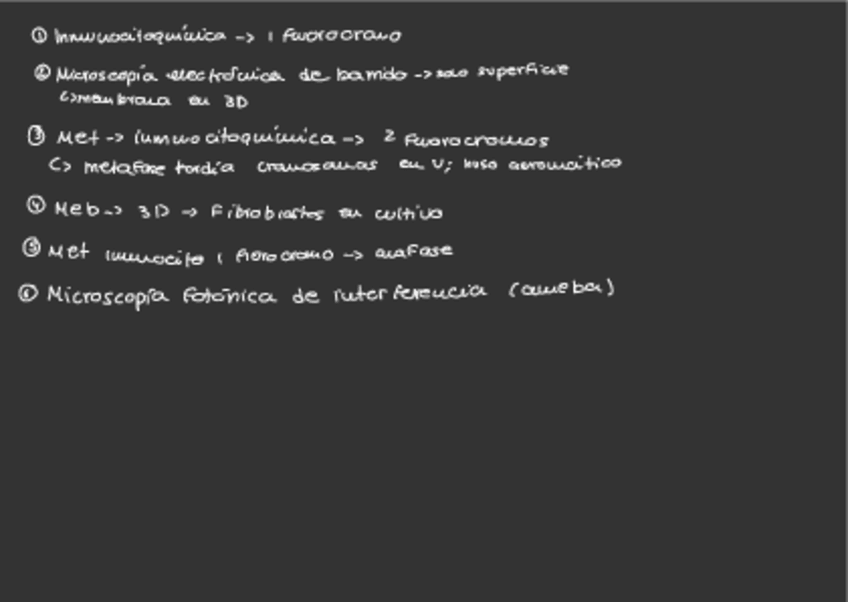 ① Inmunocitoquímica -> 1 fluorocromo
② Microscopía electrónica de barrido -> solo superficie
↳ membrana en 3D
③ Met -> inmunocitoquímica -> 2 fluorocromos
↳ metafase tardía cromosomas en V; huso acromático
④ Meb -> 3D -> Fibroblastos en cultivo
⑤ Met inmunocito 1 fluorocromo -> anafase
⑥ Microscopía fotónica de interferencia (ameba)